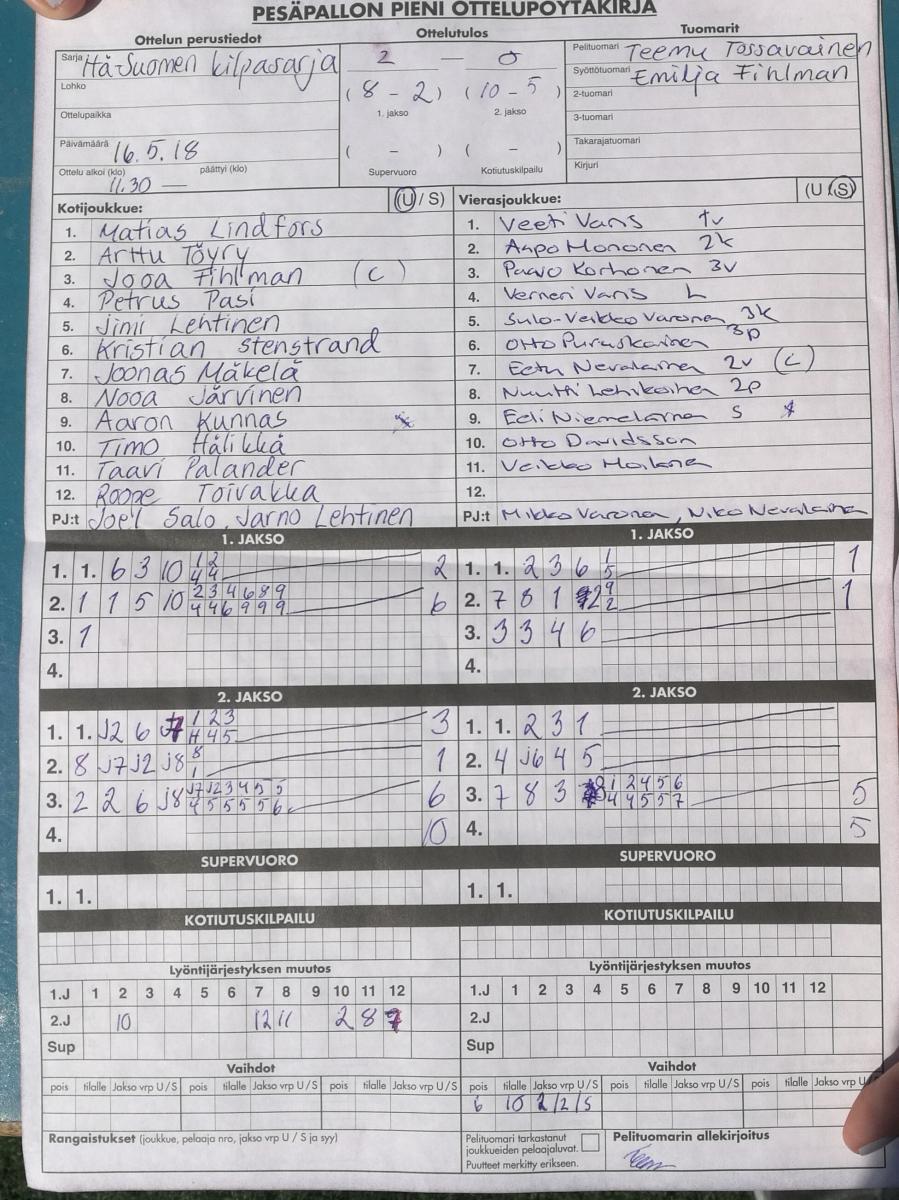 PESÄPALLON PIENI OTTELUPÖYTÄKIRJA
Ottelun perustiedot
Ottelutulos
Tuomarit
Sarja Itä-Suomen kilpasarja
Lohko
Ottelupaikka
Päivämäärä 16.5.18
Ottelu alkoi (klo) päättyi (klo)
11.30 —
2 — 0
(8 - 2) (10 - 5)
1. jakso 2. jakso
( - ) ( - )
Supervuoro Kotiutuskilpailu
Pelituomari Teemu Tossavainen
Syöttötuomari Emilja Fihlman
2-tuomari
3-tuomari
Takarajatuomari
Kirjuri
Kotijoukkue: (U / S)
1. Matias Lindfors
2. Arttu Töyry
3. Jooa Fihlman (C)
4. Petrus Pasi
5. Jimi Lehtinen
6. Kristian Stenstrand
7. Joonas Mäkelä
8. Nooa Järvinen
9. Aaron Kunnas
10. Timo Hälikkä
11. Taavi Palander
12. Roope Toivakka
PJ:t Joel Salo, Jarno Lehtinen
Vierasjoukkue: (U / S)
1. Veeti Vans 1v
2. Aapo Mononen 2k
3. Paavo Korhonen 3v
4. Verneri Vans L
5. Sulo-Veikko Varonen 3k
6. Otto Puruskainen 3p
7. Eetu Nevalainen 2v (C)
8. Nuutti Lehikoinen 2p
9. Eeli Niemeläinen S
10. Otto Davidsson
11. Veikko
12.
PJ:t Mikko Varonen, Niko Nevalainen
1. JAKSO
1. 1. 6 3 10 1 2 2
4 4
2. 1 1 5 10 2 3 4 6 8 9 6
4 4 6 9 9 9
3. 1
4.
1. JAKSO
1. 1. 2 3 6 1 1
5
2. 7 8 1 2 9 1
2
3. 3 3 4 6
4.
2. JAKSO
1. 1. J2 6 1 2 3 3
4 4 5
2. 8 J7 J2 J8 8 1
1
3. 2 2 6 J8 J7 J2 3 4 5 5 6
4 5 5 5 5 6
4. 10
2. JAKSO
1. 1. 2 3 1
2. 4 J6 4 5
3. 7 8 3 1 2 4 5 6 5
4 4 5 5 7
4. 5
SUPERVUORO
1. 1.
SUPERVUORO
1. 1.
KOTIUTUSKILPAILU
KOTIUTUSKILPAILU
Lyöntijärjestyksen muutos
1.J 1 2 3 4 5 6 7 8 9 10 11 12
2.J 10 12 11 2 8 7
Sup
Lyöntijärjestyksen muutos
1.J 1 2 3 4 5 6 7 8 9 10 11 12
2.J
Sup
Vaihdot
pois tilalle Jakso vrp U / S pois tilalle Jakso vrp U / S pois tilalle Jakso vrp U / S
Vaihdot
pois tilalle Jakso vrp U / S pois tilalle Jakso vrp U / S pois tilalle Jakso vrp U
6 10 2/2/S
Rangaistukset (joukkue, pelaaja nro, jakso vrp U / S ja syy)
Pelituomari tarkastanut
joukkueiden pelaajaluvat.
Puutteet merkitty erikseen.
Pelituomarin allekirjoitus